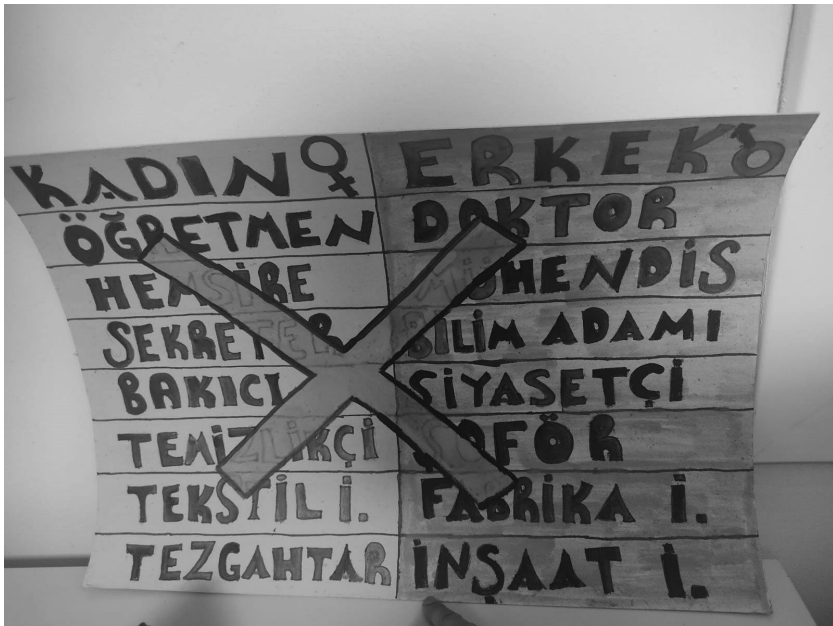 KADIN♀ ERKEK♂
ÖĞRETMEN DOKTOR
HEMŞİRE MÜHENDİS
SEKRETER BİLİM ADAMI
BAKICI SİYASETÇİ
TEMİZLİKÇİ ŞOFÖR
TEKSTİL İ. FABRİKA İ.
TEZGAHTAR İNŞAAT İ.